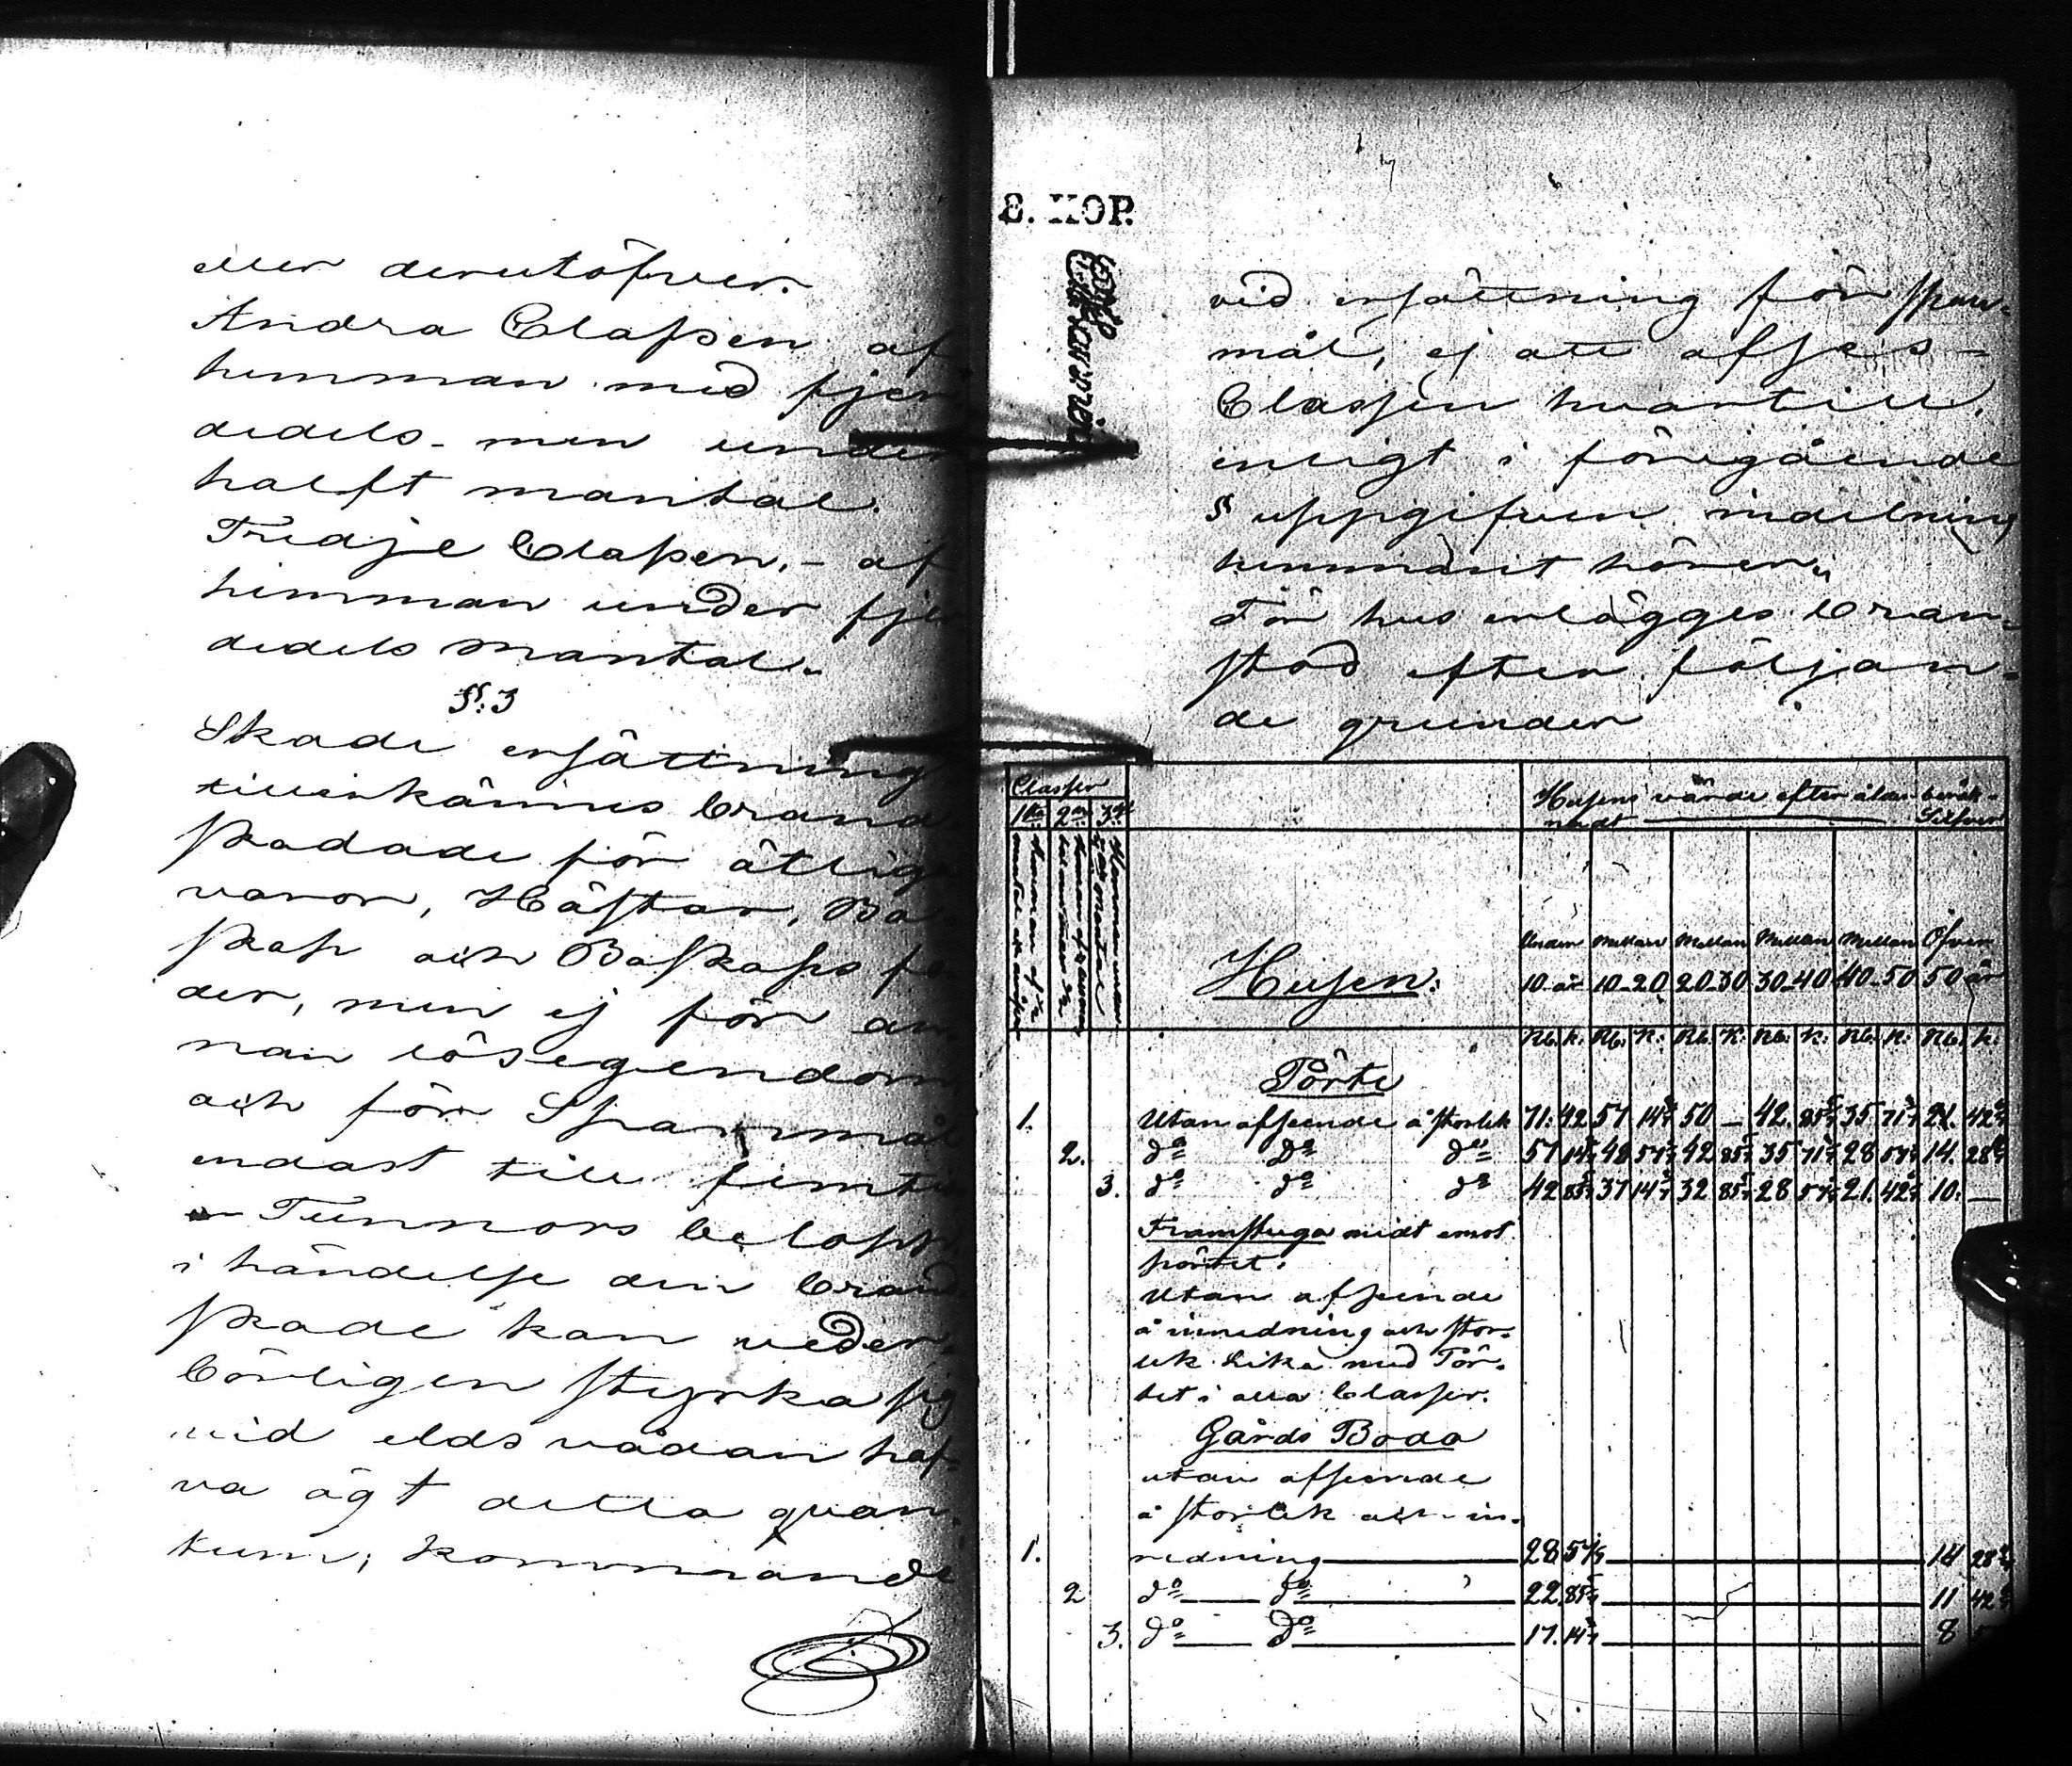 eller derutöfver.
Andra Classen af
hemman med fjer
dedels men under
halft mantal.
Tredje Classen, – af
hemman under fjer
dedels mantal.
§. 3
Skade ersättning
tillerkännes brand
skadade för ätlige
varor, Hästar, Bo
skap och Boskaps fo
der, men ej för an
nan lösegendom
och för Spannmål
endast till femtio
Tunnors belopp
i händelse den brand
skade kan veder
börligen styrka sig
vid eldsvådan haf-
va ägt detta quan-
tum; kommande
2. KOP.
vid ersättning för span-
mål, ej att afses –
Classen hvartill,
enligt i föregående
§ uppgifven indelning
hemmanet hörer.
För hus erlägges bran-
stod efter följan-
de grunder
Classer
1sta 2dra 3dje
Husens värde efter ålder beräk-
nadt Silfver
Husen:
Under Mellan Mellan Mellan Mellan Öfver
10 år 10-20 20-30 30-40 40-50 50 år
Rb. k. Rb. K. Rb. K. Rb. K. Rb. K. Rb. k.
Pörte
1. Utan afseende å storlek 71. 42 57 14 2/7 50 – 42. 85 5/7 35 71 3/7 21. 42 6/7
2. do do do 57 14 2/7 48 57 1/7 42 85 5/7 35 71 3/7 28 57 1/7 14. 28 4/7
3. do do do 42 85 5/7 37 14 2/7 32 85 5/7 28 57 1/7 21. 42 6/7 10. –
Framstuga midt emot
pörtet.
Utan afseende
å inredning och stor-
lek lika med Pör-
tet i alla Classer.
Gårds Boda
utan afseende
å storlek och in-
1. redning 28 57 1/7 14 28 4/7
2 do do 22 85 5/7 11 42
3. do do 17. 14 2/7 8